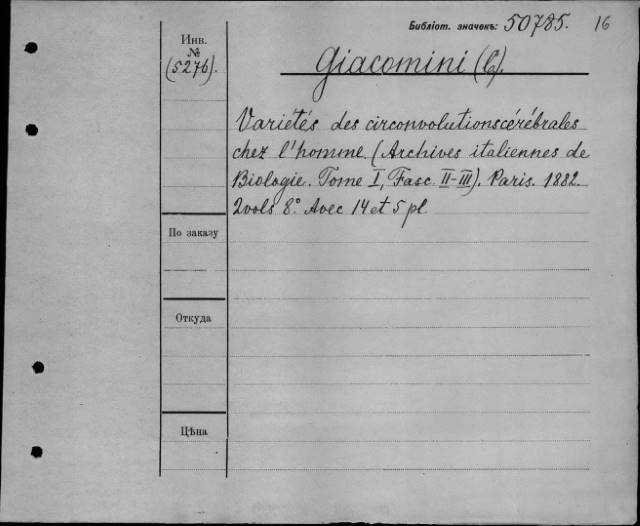 Библіот. значекъ: 50785. 16
Инв.
№
(5276).
Giacomini (C).
Variétés des circonvolutions cérébrales
chez l'homme. (Archives italiennes de
Biologie. Tome I, Fasc. II-III). Paris. 1882.
2 vols 8.° Avec 14 et 5 pl.
По заказу
Откуда
Цѣна